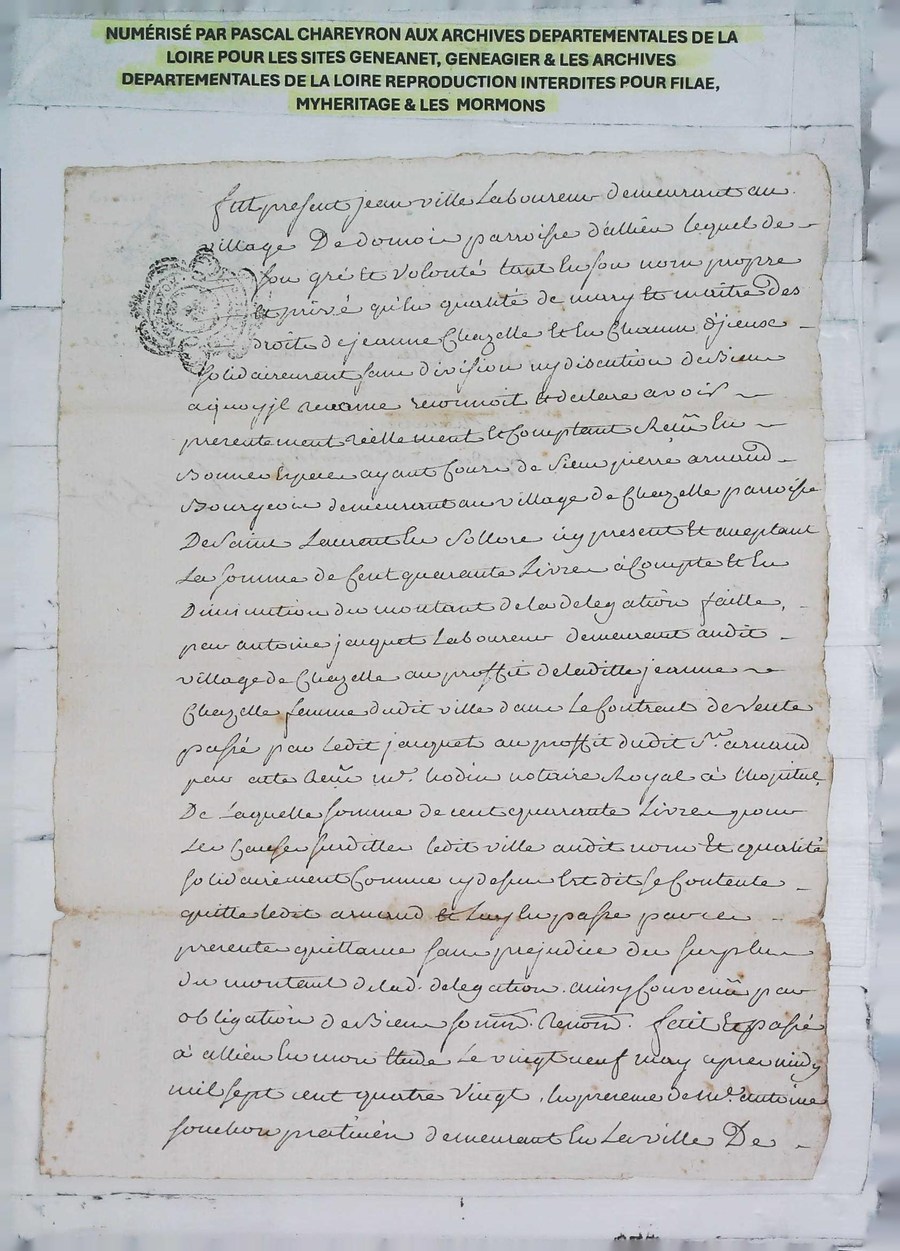 NUMÉRISÉ PAR PASCAL CHAREYRON AUX ARCHIVES DEPARTEMENTALES DE LA
LOIRE POUR LES SITES GENEANET, GENEAGIER & LES ARCHIVES
DEPARTEMENTALES DE LA LOIRE REPRODUCTION INTERDITES POUR FILAE,
MYHERITAGE & LES MORMONS
fut present jean ville Laboureur demeurant au
village De domois parroisse d'allieu lequel de
son gré Et volonté tant En son nom propre
Et privé qu'En qualité de mary Et maitre des
droits de jeanne Chazelle Et En Chacun d'jceux
solidairement sans division ny discution de Biens
aquoy jl renonce reconnoit Et declare avoir
presentement réellement Et Comptant Reçû En
Bonnes Especes ayant Cours de sieur pierre arnaud
Bourgeois demeurant au village de Chazelle parroisse
De Saint Laurent En Sollore icy present Et acceptant
La somme de Cent quarante Livres à Compte Et En
Diminution du montant de la delegation faitte
par antoine jacquet Laboureur demeurant audit
village de Chazelle au proffit de laditte jeanne
Chazelle femme dudit ville dans Le Contract de vente
passé par Ledit jacquet au proffit dudit Sr. arnaud
par acte Reçû Me. notaire Royal à L'hopital
De Laquelle somme de cent quarrante Livres pour
Les Causes surdittes Ledit ville audit nom Et qualité
solidairement Comme cy dessus Est dit se Contente
quitte Ledit arnaud Et Luy En passe par ces
presentes quittance sans prejudice du surplus
du montant de lad. delegation. ainsy Convenû par
obligation de Biens soum. Renon. fait Et passé
à allieu En mon Etude Le vingt neuf may apres midy
mil sept cent quatre vingt, En presence de Me. antoine
souchon praticien demeurant En La ville De